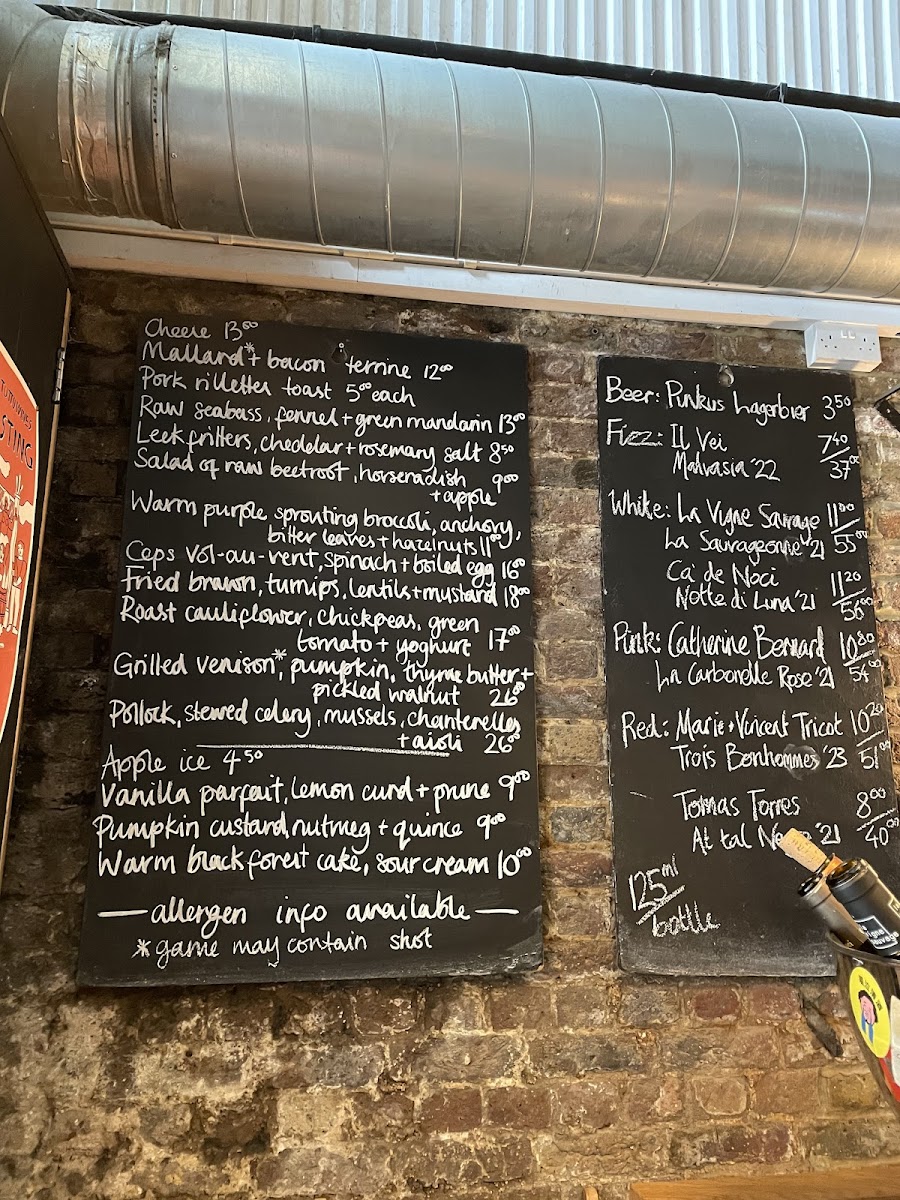 TURNOURS
STING
Cheese 13⁰⁰
Mallard* + bacon terrine 12⁰⁰
Pork rillettes toast 5⁰⁰ each
Raw seabass, fennel + green mandarin 13⁰⁰
Leek fritters, cheddar + rosemary salt 8⁵⁰
Salad of raw beetroot, horseradish 9⁰⁰
+ apple
Warm purple sprouting broccoli, anchovy,
bitter leaves + hazelnuts 11⁰⁰
Ceps vol-au-vent, spinach + boiled egg 16⁰⁰
Fried brawn, turnips, lentils + mustard 18⁰⁰
Roast cauliflower, chickpeas, green
tomato + yoghurt 17⁰⁰
Grilled venison*, pumpkin, thyme butter +
pickled walnut 26⁰⁰
Pollock, stewed celery, mussels, chanterelles
+ aioli 26⁰⁰
Apple ice 4⁵⁰
Vanilla parfait, lemon curd + prune 9⁰⁰
Pumpkin custard, nutmeg + quince 9⁰⁰
Warm black forest cake, sour cream 10⁰⁰
— allergen info available —
* game may contain shot
Beer: Punkus Lagerbier 3⁵⁰
Fizz: Il Vei 7⁴⁰
Malvasia '22 37⁰⁰
White: La Vigne Sauvage 11⁰⁰
La Sauvageonne '21 55⁰⁰
Ca' de Noci 11²⁰
Notte di Luna '21 56⁰⁰
Pink: Catherine Bernard 10⁸⁰
La Carbonelle Rose '21 54⁰⁰
Red: Marie + Vincent Tricot 10²⁰
Trois Bonhommes '23 51⁰⁰
Tomas Torres 8⁰⁰
Al tal '21 40⁰⁰
125ml
bottle
Vigne
Sauvage